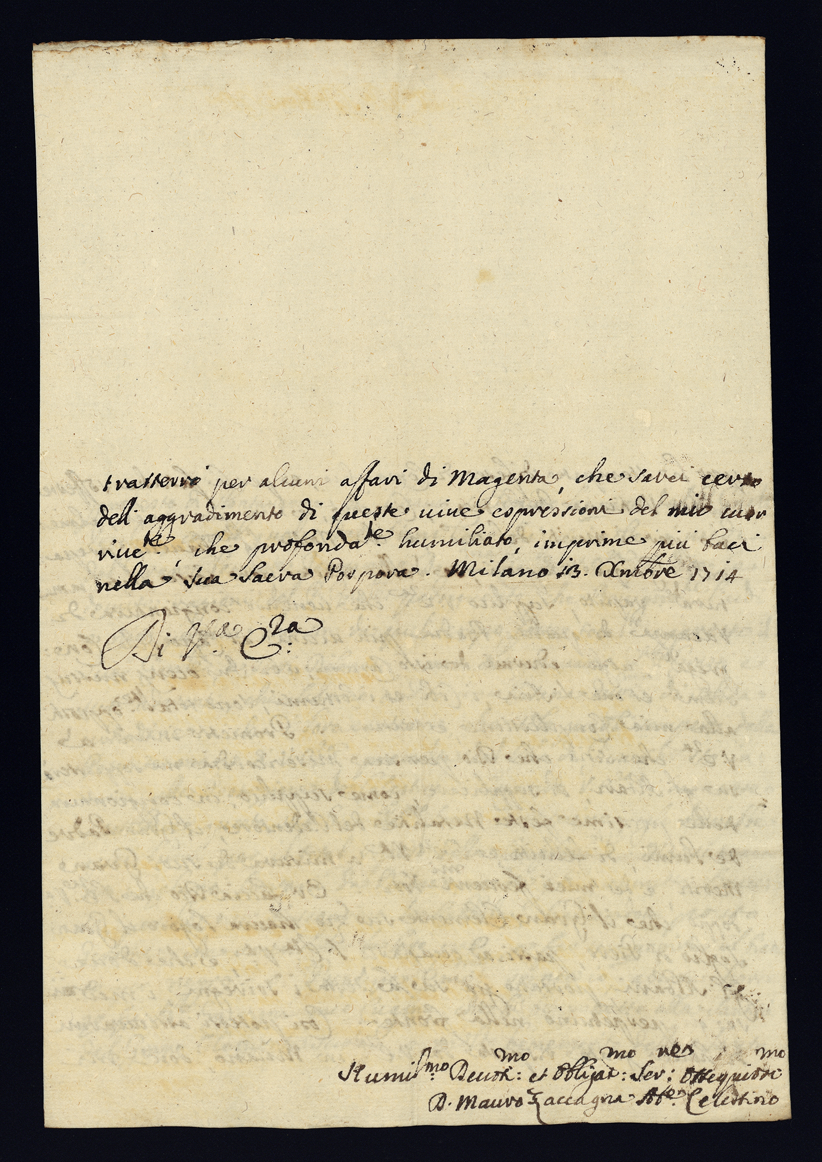 trasterrò per alcuni affari di Magenta, che sarei certo
dell'aggradimento di queste vive espressioni del mio cuor
rive.te, che profonda.te humiliato, imprime più baci
nella Sua Sacra Porpora. Milano 13. Xmbre 1714
Di V.a
Humil.mo Devot:mo et Obligat:mo Ser:re Ossequios.mo
D. Mauro Zaccagna Ab.e Celestino